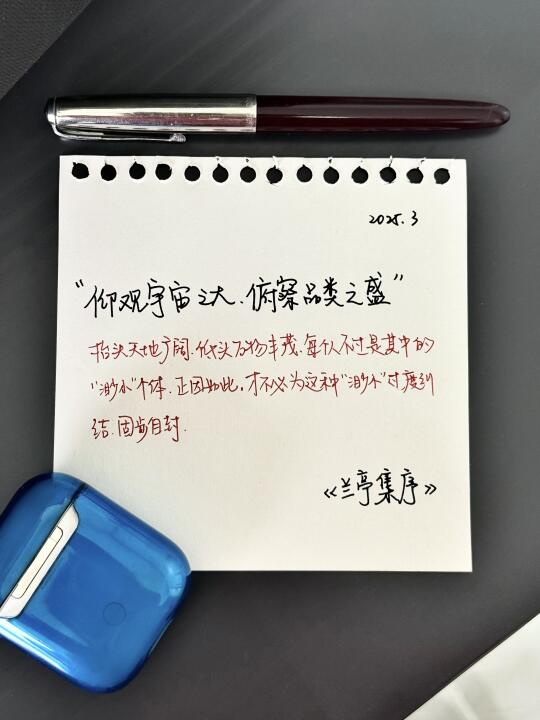 2025.3
“仰观宇宙之大，俯察品类之盛”
抬头天地广阔，低头万物丰茂，每个人不过是其中的
“渺小”个体，正因如此，才不必为这种“渺小”过度纠
结，固步自封．
《兰亭集序》